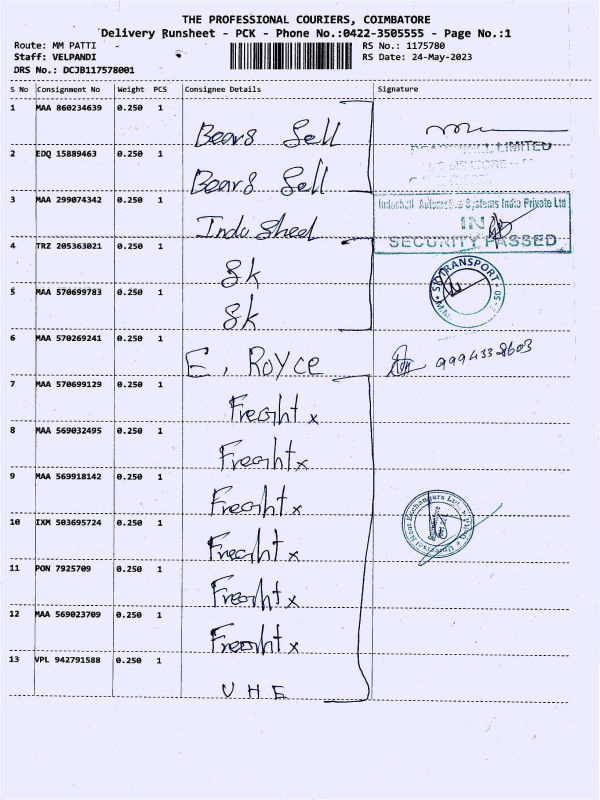 THE PROFESSIONAL COURIERS, COIMBATORE
Delivery Runsheet - PCK - Phone No.:0422-3505555 - Page No.:1
Route: MM PATTI RS No.: 1175780
Staff: VELPANDI RS Date: 24-May-2023
DRS No.: DCJB117578001
S No Consignment No Weight PCS Consignee Details Signature
1 MAA 860234639 0.250 1
Bears Sell
2 EDQ 15889463 0.250 1 LIMITED
Bears Sell
3 MAA 299074342 0.250 1 Automotive Systems India Private Ltd
Indu Sheel IN
4 TRZ 205363021 0.250 1 SECURITY PASSED
Sk TRANSPORT
5 MAA 570699783 0.250 1
Sk
6 MAA 570269241 0.250 1
E, ROYCE 9994338603
7 MAA 570699129 0.250 1
Freaht x
8 MAA 569032495 0.250 1
Freaht x
9 MAA 569918142 0.250 1
Freaht x Universal Heat Exchangers Ltd.
10 IXM 503695724 0.250 1
Freaht x
11 PON 7925709 0.250 1
Freaht x
12 MAA 569023709 0.250 1
Freaht x
13 VPL 942791588 0.250 1
U H E